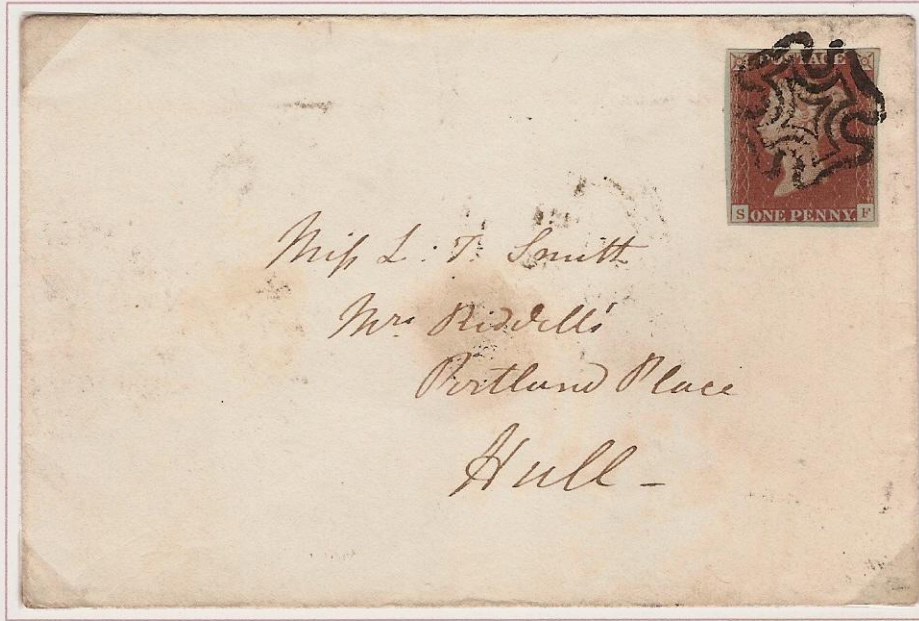 POSTAGE
S ONE PENNY. F
Miſs L: T. Smith
Mrs Riddell's
Portland Place
Hull –